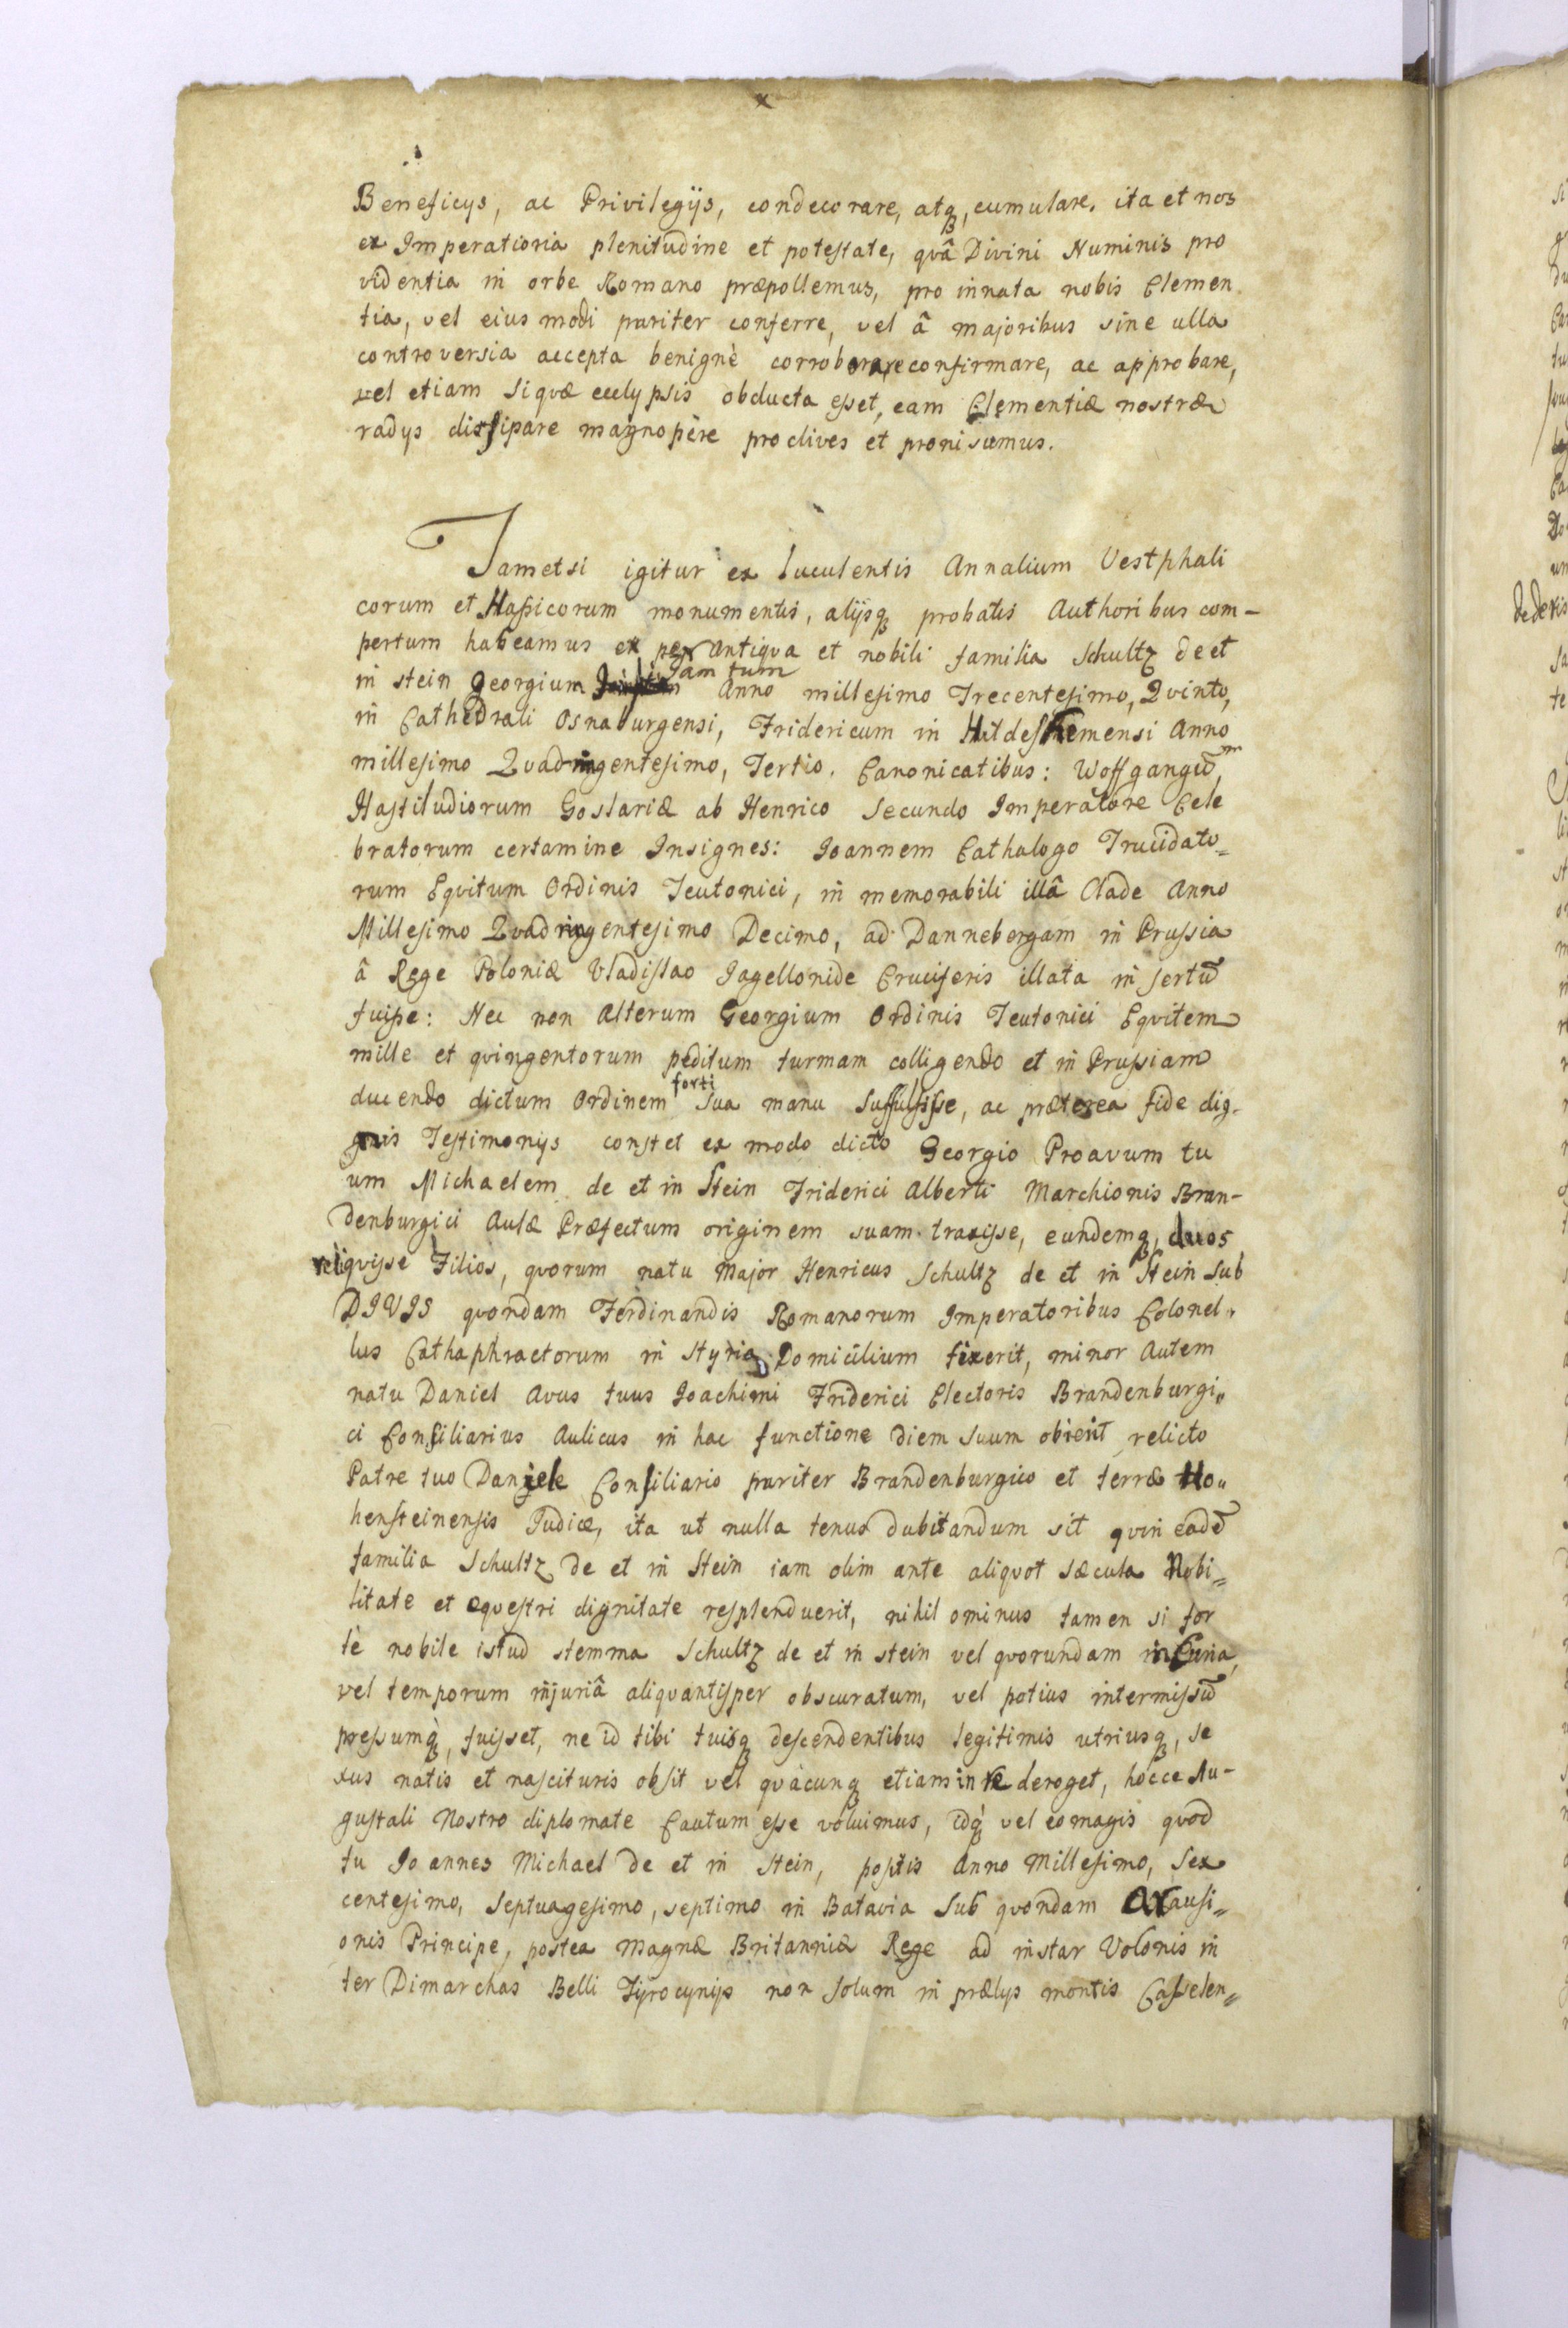 Beneficys, ac Privilegijs, condecorare, atq, cumulare. ita et nos
ex Imperatioria plenitudine et potestate, qvâ Divini Numinis pro
videntia in orbe Romano præpollemus, pro innata nobis Clemen
tia, vel eius modi pariter conferre, vel â majoribus sine ulla
controversia accepta benignè corroborare confirmare, ac approbare,
vel etiam siqvæ eclypsis obducta esset, eam Clementiæ nostræ
radys dissipare magnopère proclives et proni sumus.
Tametsi igitur ex luculentis Annalium Vestphali
corum et Hassicorum monumentis, alijsq probatis Authoribus com-
pertum habeamus ex per antiqva et nobili familia Schultz de et
in stein Georgium Jam tum Anno millesimo Trecentesimo, Qvinto,
in Cathedrali Osnaburgensi, Fridericum in Hildeshemensi Anno
millesimo Qvadringentesimo, Tertio. Canonicatibus: Woffgangūm,
Hastiludiorum Goslariæ ab Henrico Secundo Imperatore Cele
bratorum certamine Insignes: Joannem Cathalogo Trucidato=
rum Eqvitum Ordinis Teutonici, in memorabili illâ Clade Anno
Millesimo Qvadringentesimo Decimo, ad Dannebergam in Prussia
â Rege Poloniæ Vladislao Jagellonide Cruciferis illata in sertū
fuisse: Nec non Alterum Georgium Ordinis Teutonici Eqvitem
mille et qvingentorum peditum turmam colligendo et in Prussiam
ducendo dictum Ordinem forti sua manu suffulsisse, ac præterea fide dig-
nis Testimonijs constet ex modo dicto Georgio Proavum tu
um Michaelem de et in Stein Friderici Alberti Marchionis Bran-
denburgici Aulæ Præfectum originem suam traxisse, eundemq, duos
reliqvisse Filios, qvorum natu Major Henricus Schultz de et in Stein sub
DIVIS qvondam Ferdinandis Romanorum Imperatoribus Colonel-
lus Cathaphractorum in Styria Domicilium fixerit, minor Autem
natu Daniel Avus tuus Joachimi Friderici Electoris Brandenburgi=
ci Consiliarius Aulicus in hac functione diem suum obierit relicto
Patre tuo Daniele Consiliario pariter Brandenburgico et terræ Ho=
hensteinensis Judice, ita ut nulla tenus dubitandum sit qvin eadē
familia Schultz de et in Stein iam olim ante aliqvot sæcula Nobi=
litate et eqvestri dignitate resplenduerit, nihil ominus tamen si for
tè nobile istud stemma Schultz de et in stein vel qvorundam incuria,
vel temporum injuriâ aliqvantisper obscuratum, vel potius intermissū
pressumq, fuisset, ne id tibi tuisq descendentibus legitimis utriusq, se
xus natis et nascituris obsit vel qvàcunq etiam in re deroget, hocce Au-
gustali Nostro diplomate Cautum esse voluimus, idq vel eo magis qvod
tu Joannes Michael de et in Stein, postis Anno Millesimo, Sex
centesimo, Septuagesimo, septimo in Batavia sub qvondam Arausi=
onis Principe, postea Magnæ Britanniæ Rege ad instar Volonis in
ter Dimarchas Belli Tyrocynijs non solum in prælys montis Casselen=